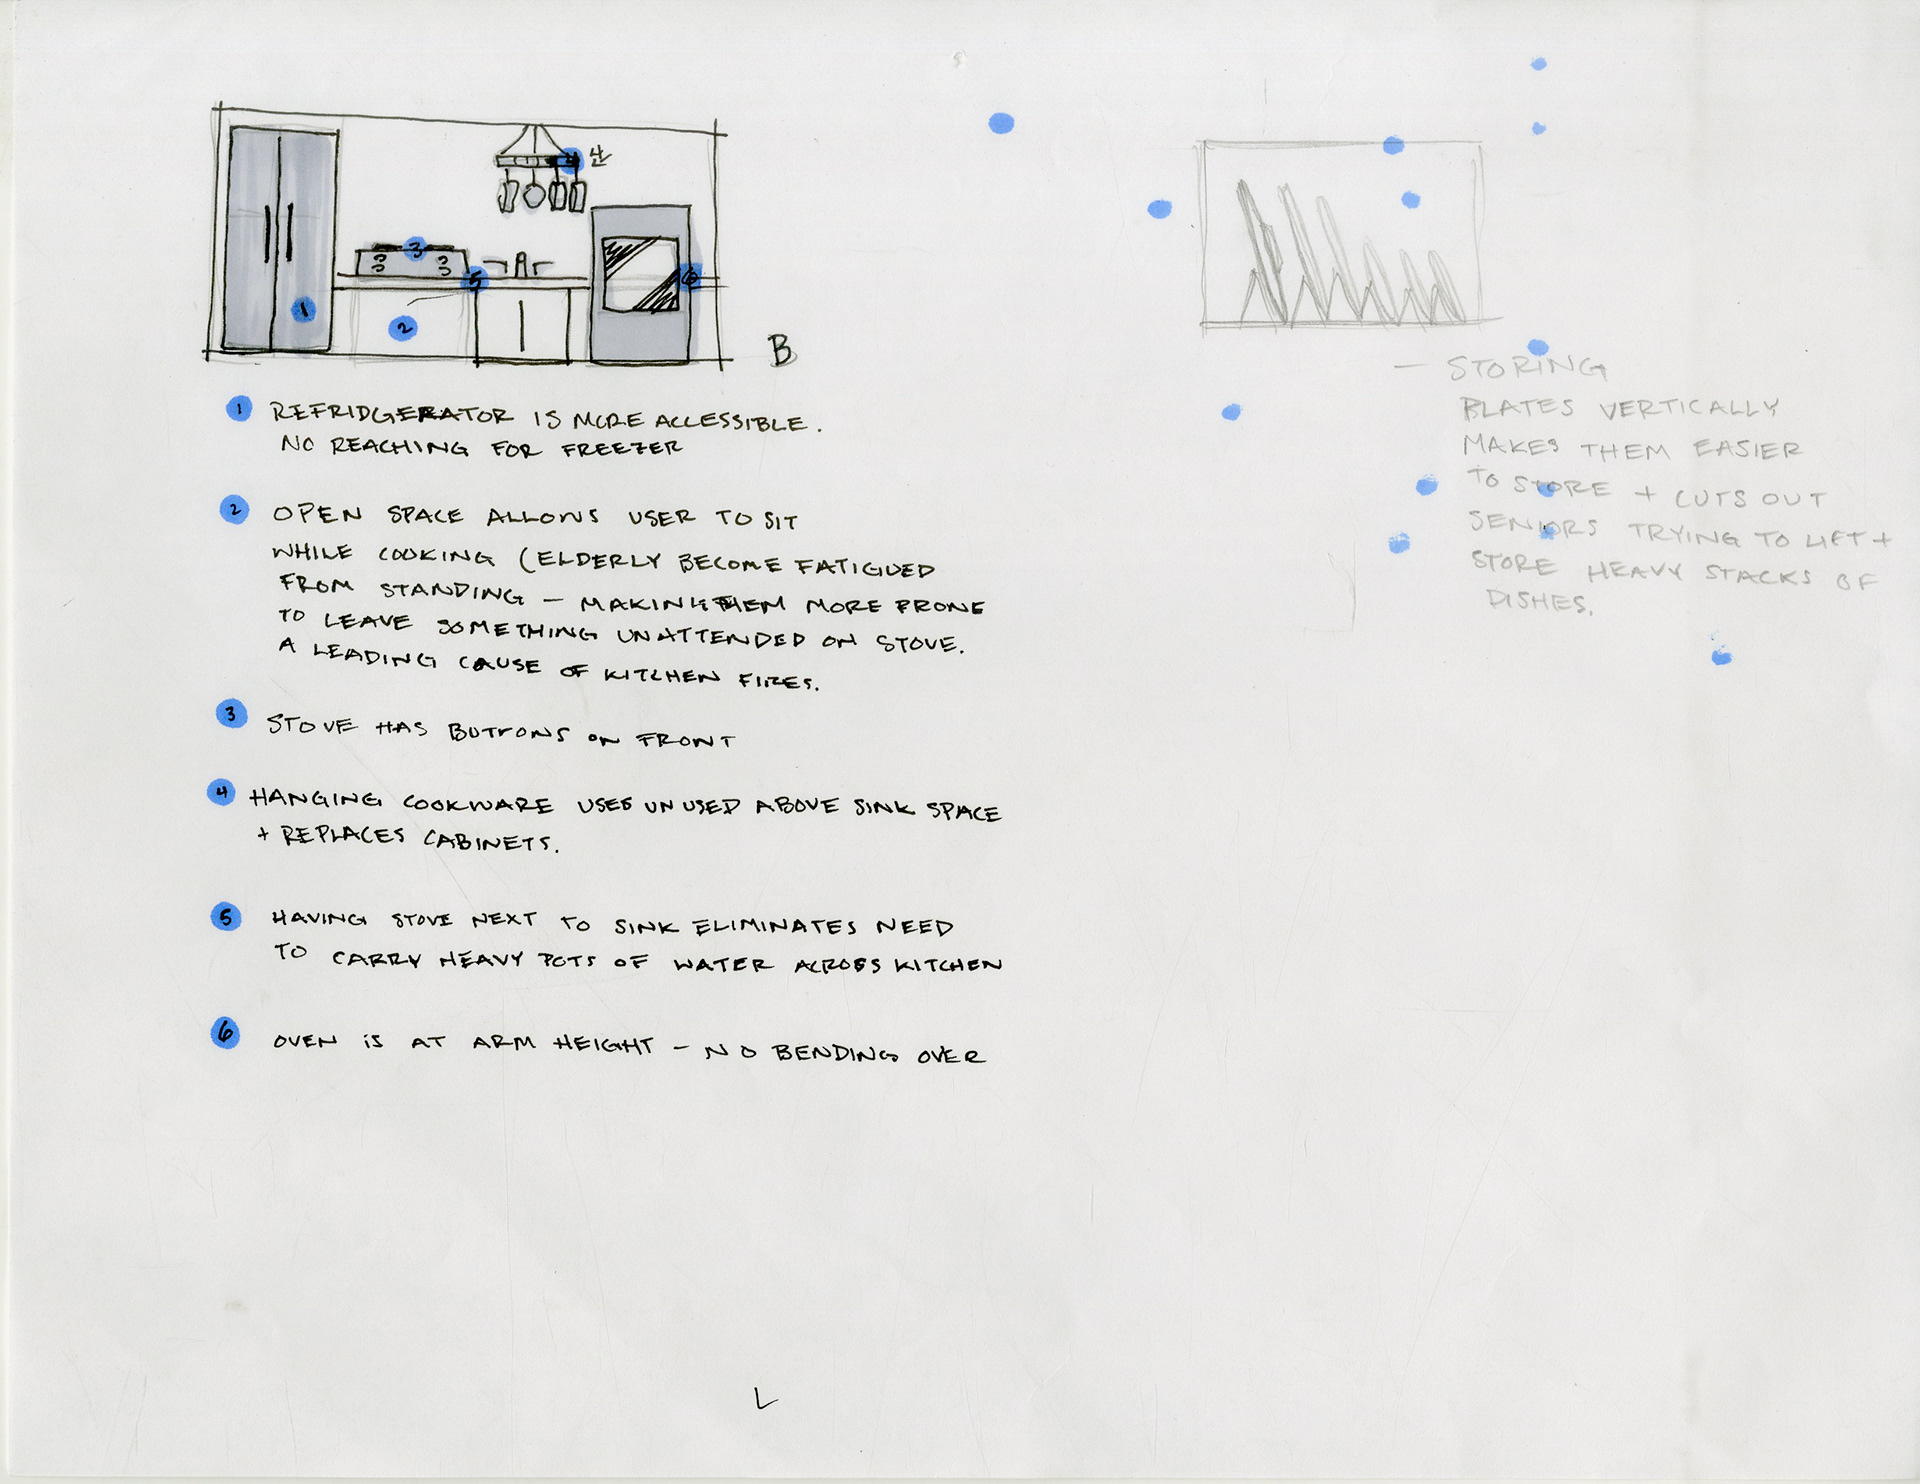 4
3
5
6
1
2
B
1 REFRIDGERATOR IS MORE ACCESSIBLE.
NO REACHING FOR FREEZER
2 OPEN SPACE ALLOWS USER TO SIT
WHILE COOKING (ELDERLY BECOME FATIGUED
FROM STANDING — MAKING THEM MORE PRONE
TO LEAVE SOMETHING UNATTENDED ON STOVE.
A LEADING CAUSE OF KITCHEN FIRES.
3 STOVE HAS BUTTONS ON FRONT
4 HANGING COOKWARE USES UNUSED ABOVE SINK SPACE
+ REPLACES CABINETS.
5 HAVING STOVE NEXT TO SINK ELIMINATES NEED
TO CARRY HEAVY POTS OF WATER ACROSS KITCHEN
6 OVEN IS AT ARM HEIGHT - NO BENDING OVER
— STORING
PLATES VERTICALLY
MAKES THEM EASIER
TO STORE + CUTS OUT
SENIORS TRYING TO LIFT +
STORE HEAVY STACKS OF
DISHES.